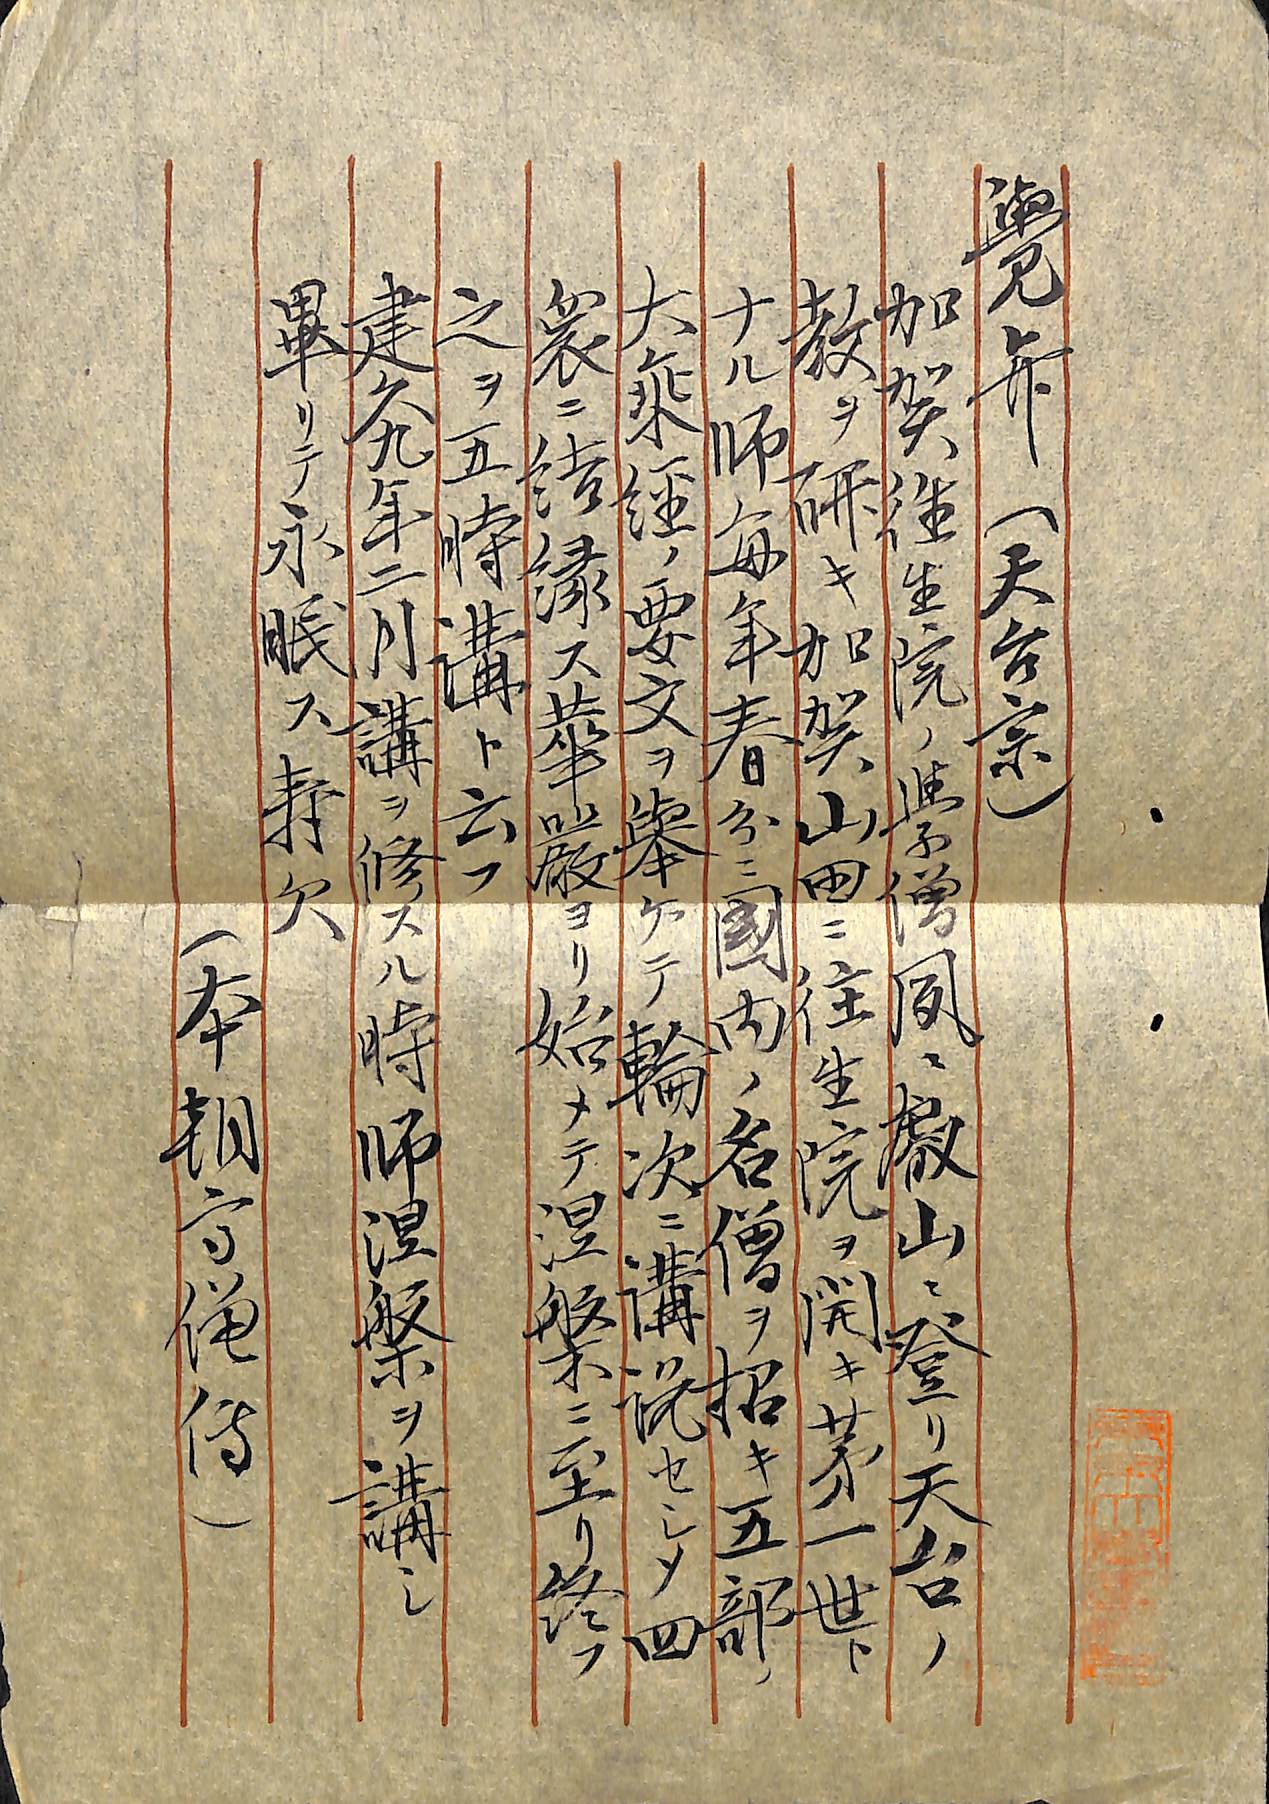 覺弁（天台宗）
加賀往生院ノ學僧夙ニ叡山ニ登リ天台ノ
教ヲ研キ加賀山田ニ往生院ヲ開キ茅一世ト
ナル師每年春分ニ國内ノ名僧ヲ招キ五部ノ
大乘經ノ要文ヲ擧ケテ輪次ニ講説セシメ四
衆ニ結縁ス華嚴ヨリ始メテ涅槃ニ至リ終フ
之ヲ五時講ト云フ
建久九年二月講ヲ修スル時師涅槃ヲ講シ
畢リテ永眠ス寿欠
（本朝高僧傳）